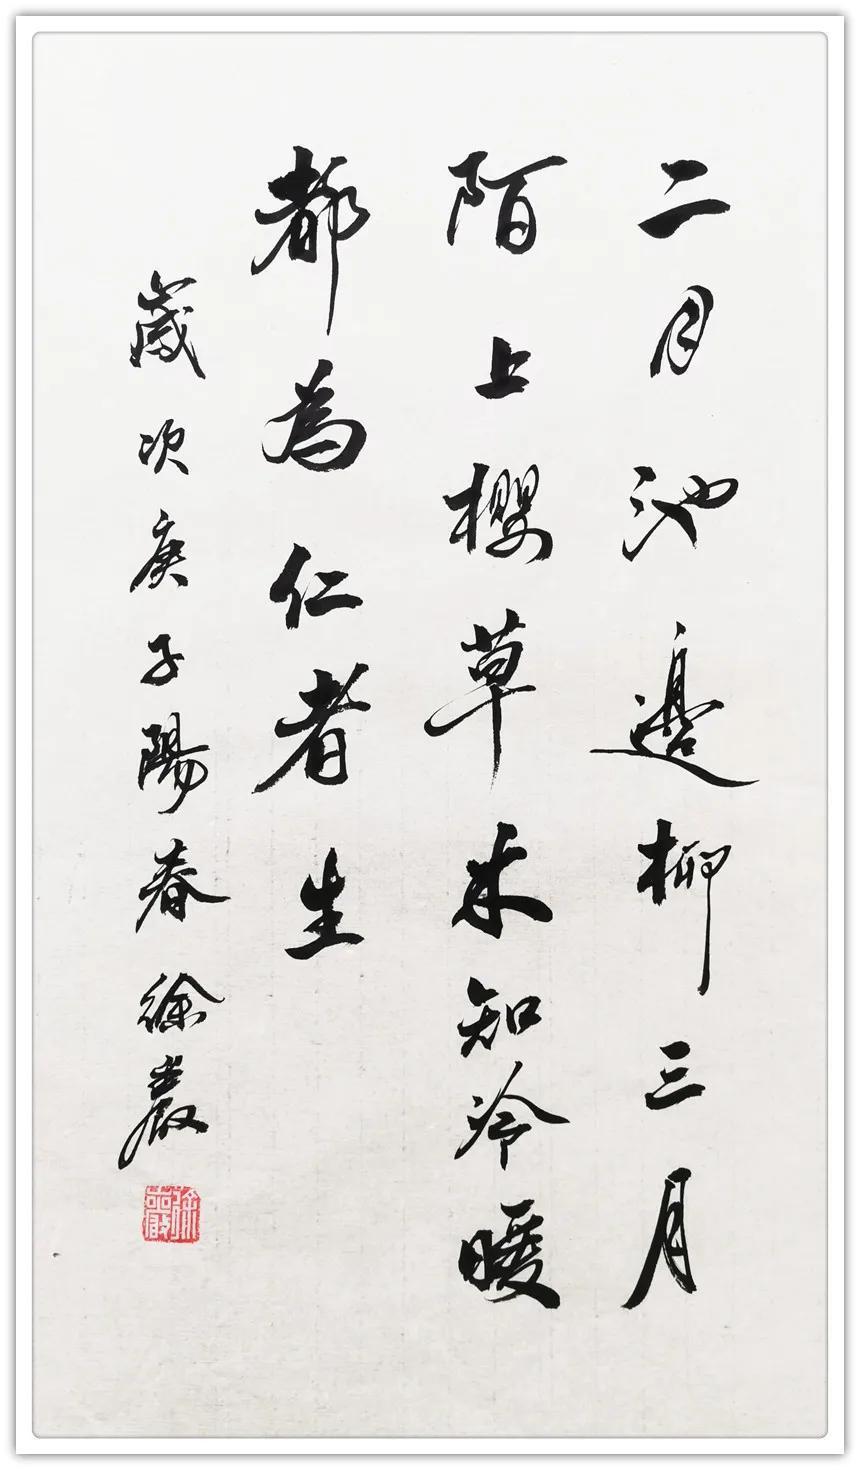 二月池邉柳三月
陌上櫻草木知冷暖
都為仁者生
歲次庚子陽春徐嚴
徐嚴